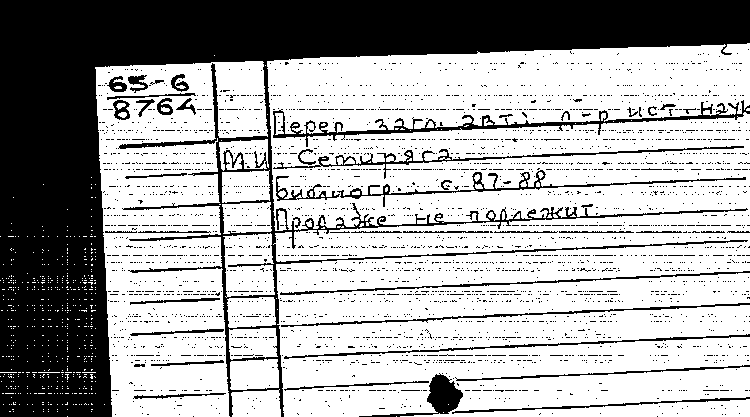 65-6
8764
Перед загл. авт.: д-р ист. наук
М.И. Семиряга
Библиогр.: с. 87-88.
Продаже не подлежит.